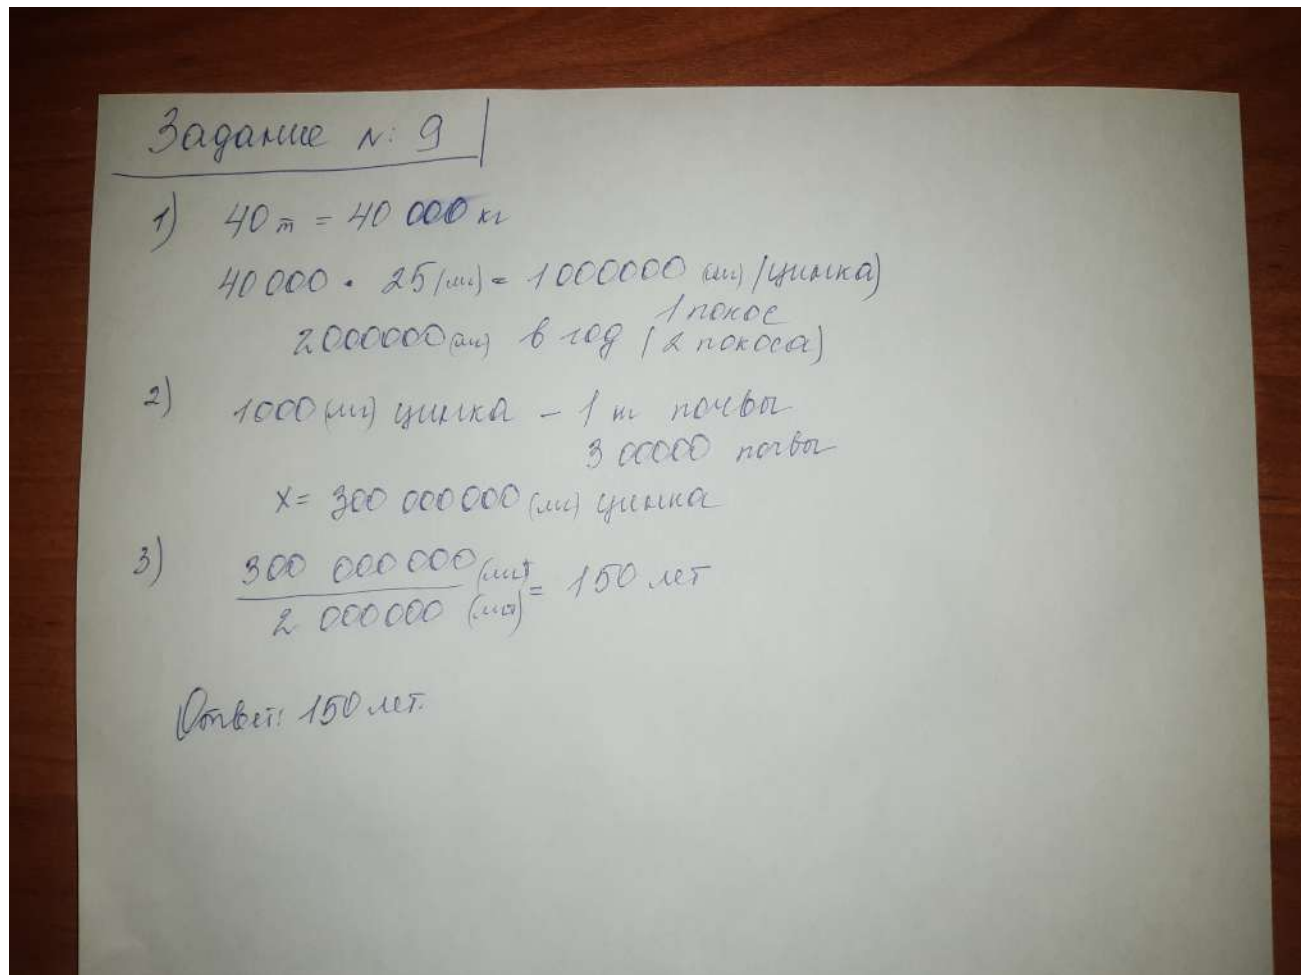 Задание №: 9
1) 40 т = 40 000 кг
40 000 · 25 (мг) = 1000000 (мг) (цинка)
1 покос
2000000 (мг) в год (2 покоса)
2) 1000 (мг) цинка – 1 т почвы
300000 почвы
x = 300 000 000 (мг) цинка
3) 300 000 000 (мг)
2 000000 (мг) = 150 лет
Ответ: 150 лет.